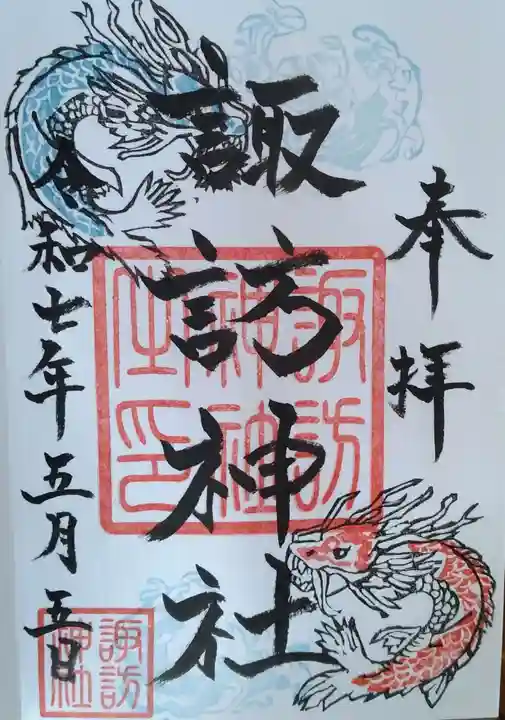 奉拝
諏訪神社
令和七年五月五日
諏訪
神社
之印
諏訪
神社